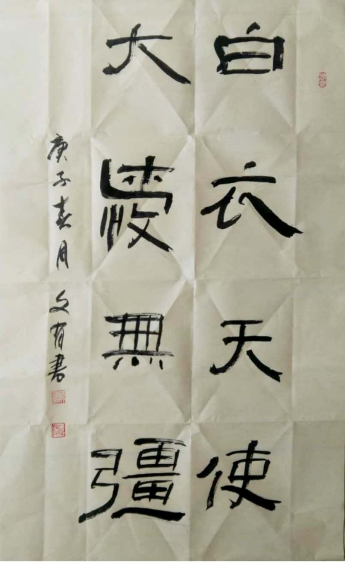 白衣天使
大愛無疆
庚子春月 文有書